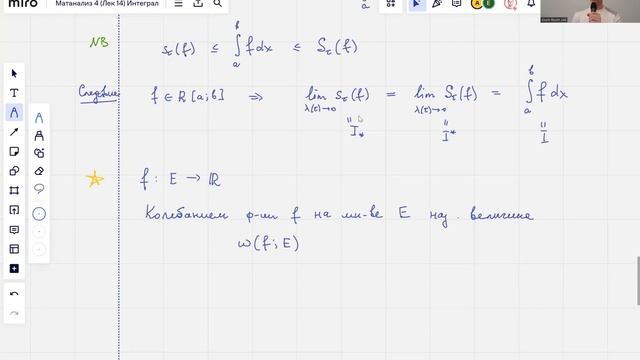 miro
Матанализ 4 (Лек 14) Интеграл
a
NB s_τ(f) ≤ ∫_a^b f dx ≤ S_τ(f)
Следствие f ∈ R[a;b] ⇒ lim_{λ(τ)→0} s_τ(f) = lim_{λ(τ)→0} S_τ(f) = ∫_a^b f dx
= I_* = I^* = I
f: E → ℝ
Колебанием ф-ии f на мн-ве E наз. величина
ω(f; E)